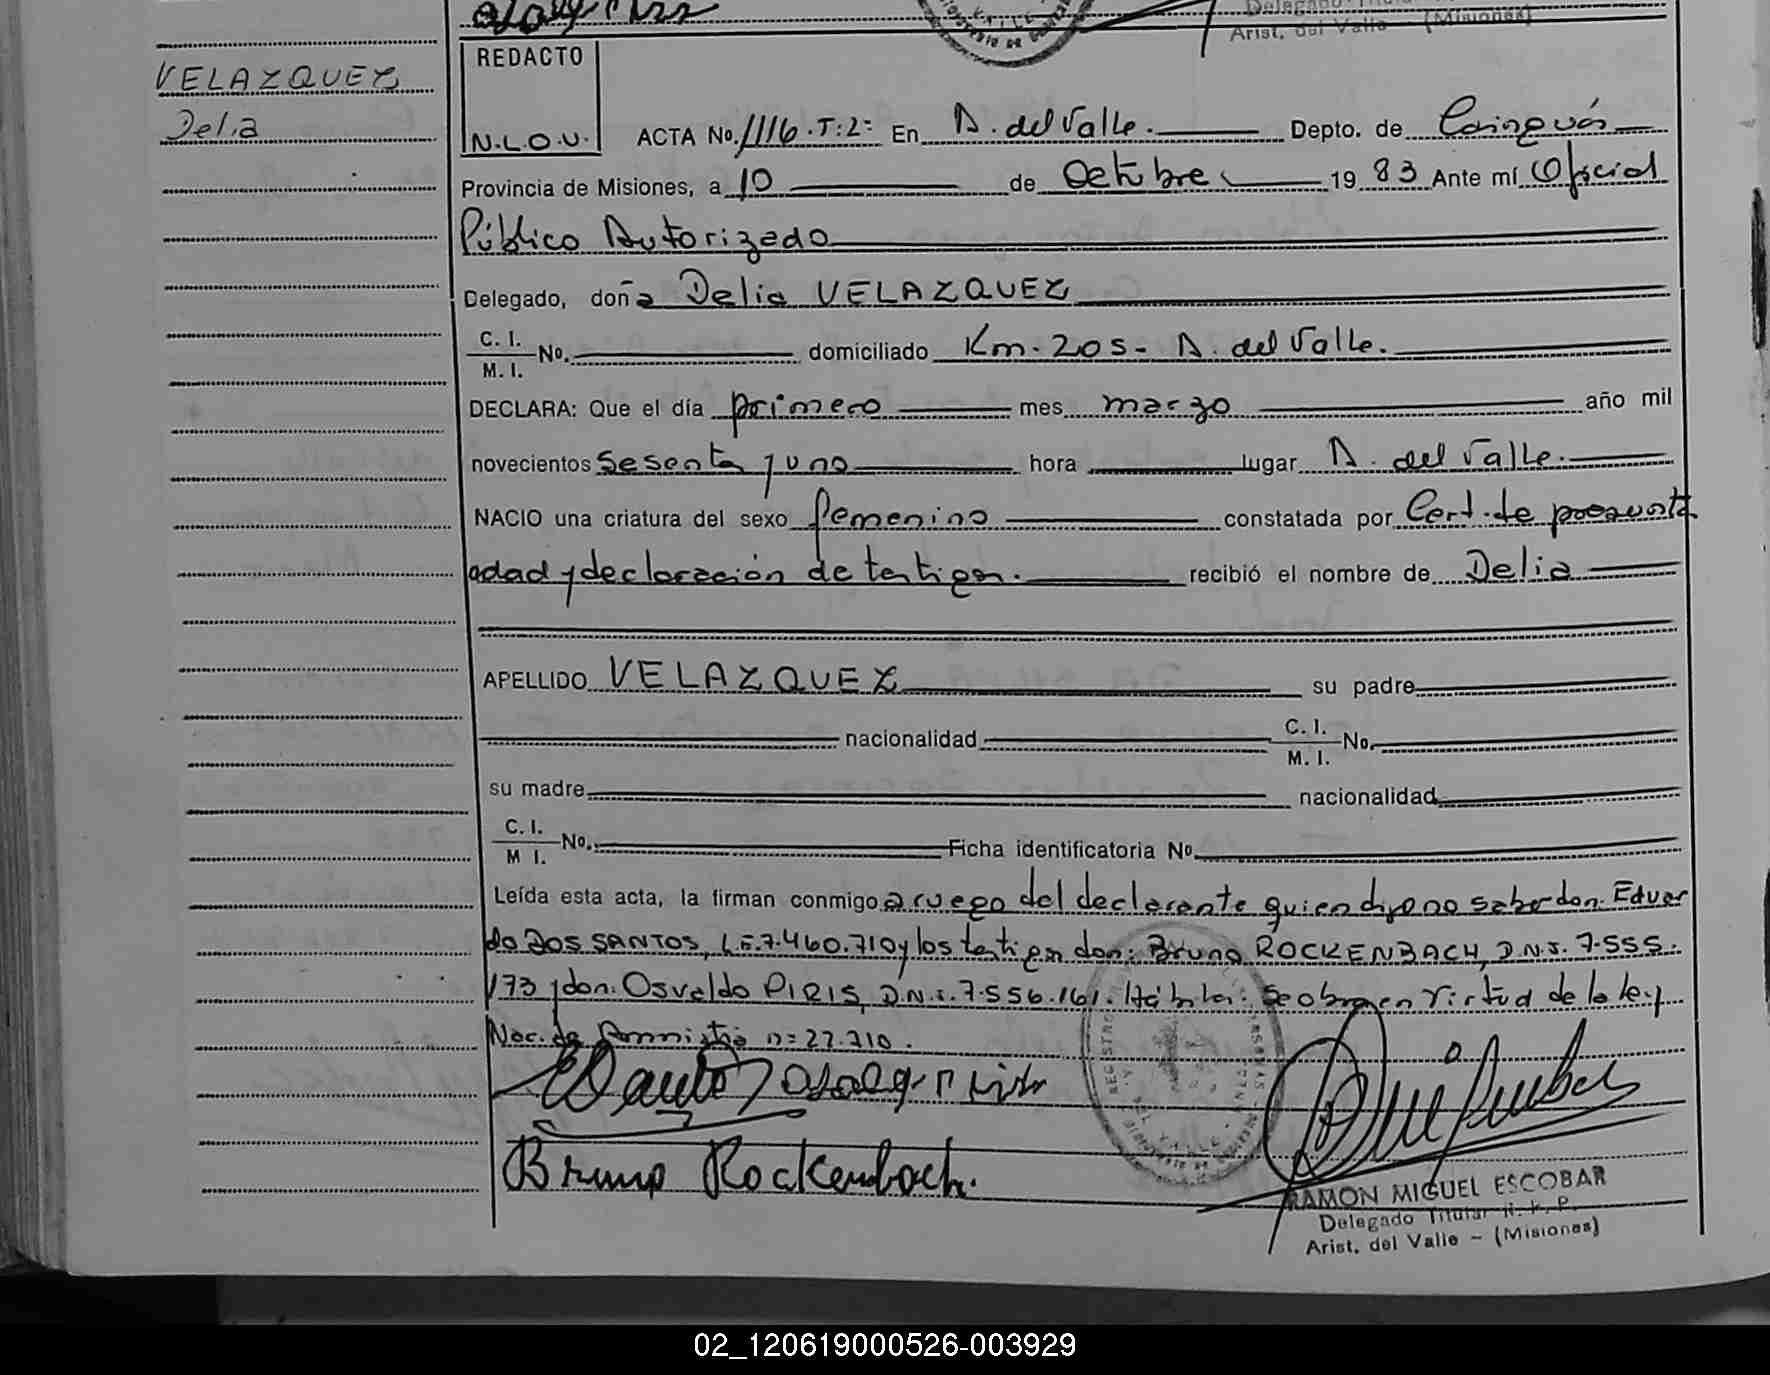 Delegado Titular
Arist. del Valle (Misiones)
VELAZQUEZ
Delia
REDACTO
N.L.O.V.
ACTA No. 1116.T:2= En A. del Valle. Depto. de Cainguás
Provincia de Misiones, a 10 de Octubre 1983 Ante mí Oficial
Público Autorizado
Delegado, doña Delia VELAZQUEZ
C. I.
M. I. No. domiciliado Km. 205- A. del Valle.
DECLARA: Que el día primero mes marzo año mil
novecientos sesenta y uno hora lugar A. del Valle.
NACIO una criatura del sexo femenino constatada por Cert. de presunta
edad y declaración de testigos. recibió el nombre de Delia
APELLIDO VELAZQUEZ su padre
nacionalidad C. I.
M. I. No.
su madre nacionalidad
C. I.
M I. No. Ficha identificatoria No
Leída esta acta, la firman conmigo a ruego del declarante quien dijo no saber don. Eduar
do DOS SANTOS, L.E.7.460.710 y los testigos don: Bruno ROCKENBACH, D.N.I. 7.555.
173 y don. Osvaldo PIRIS, D.N.I. 7.556.161. Hábiles: Se obra en virtud de la ley
Nac. de Amnistía n= 22.710.
Bruno Rockenbach.
RAMON MIGUEL ESCOBAR
Delegado Titular R. P.
Arist. del Valle - (Misiones)
02_120619000526-003929